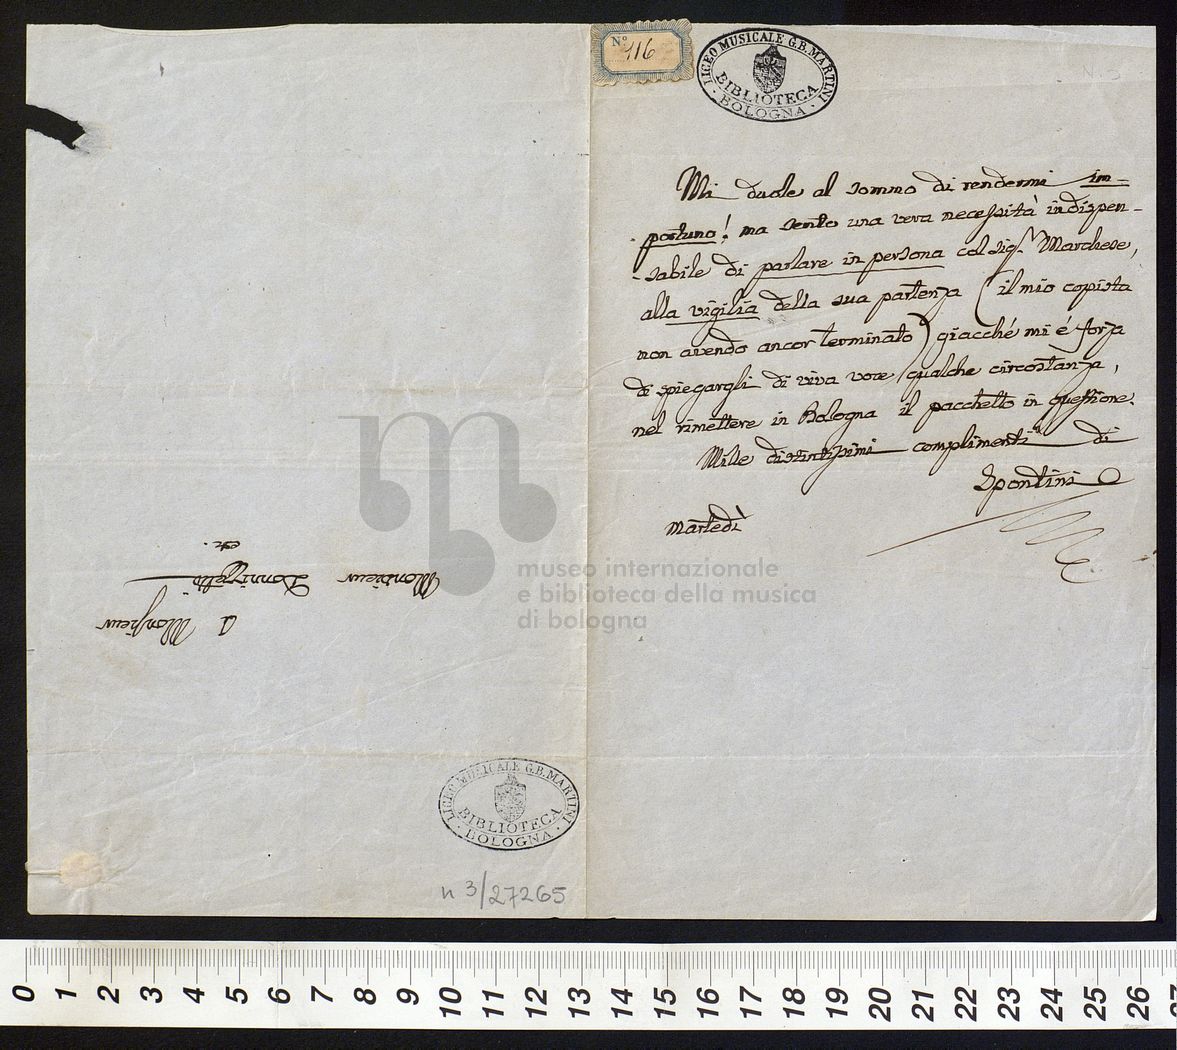 Nº 116
LICEO MUSICALE G.B. MARTINI
BIBLIOTECA
· BOLOGNA ·
N. 3
Mi duole al sommo di rendermi im-
portuno! ma sento una vera necessità indispen-
sabile di parlare in persona col Sig.r Marchese,
alla vigilia della sua partenza (il mio copista
non avendo ancor terminato) giacché mi é forza
di spiegargli di viva voce qualche circostanza,
nel rimettere in Bologna il pacchetto in questione.
Mille distintissimi complimenti di
Spontini
martedì
A Monsieur
Monsieur Donnizetti
etc.
LICEO MUSICALE G.B. MARTINI
BIBLIOTECA
· BOLOGNA ·
n 3/27265
museo internazionale
e biblioteca della musica
di bologna
0 1 2 3 4 5 6 7 8 9 10 11 12 13 14 15 16 17 18 19 20 21 22 23 24 25 26 27